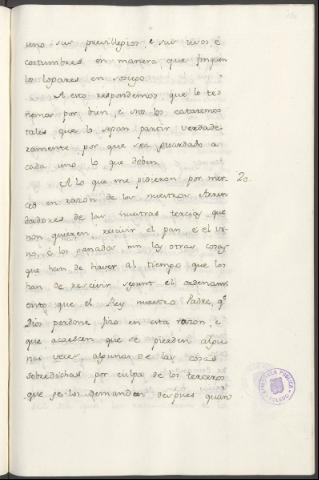 uno sus previllegios e sus usos e
costumbres en manera que finquen
los logares en sosiego.
A esto respondemos que lo te-
nemos por bien, e nos les cataremos
tales que lo sepan partir verdade-
ramente por que sea guardado a
cada uno lo que deben.
A lo que me pidieron por mer- 20.
ced en razon de los nuestros Arren-
dadores de las nuestras tercias que
non quieren recivir el pan e el vi-
no, e los ganados nin las otras cosas
que han de haver al tiempo que los
han de rescivir segunt el ordenami-
ento que el Rey nuestro Padre, q.e
Dios perdone fizo en esta razon, e
que acaescen que se pierden algu-
nas veces algunas de las cosas
sobredichas por culpa de los terceros
que se los demandan despues quan
BIBLIOTECA PUBLICA
TOLEDO